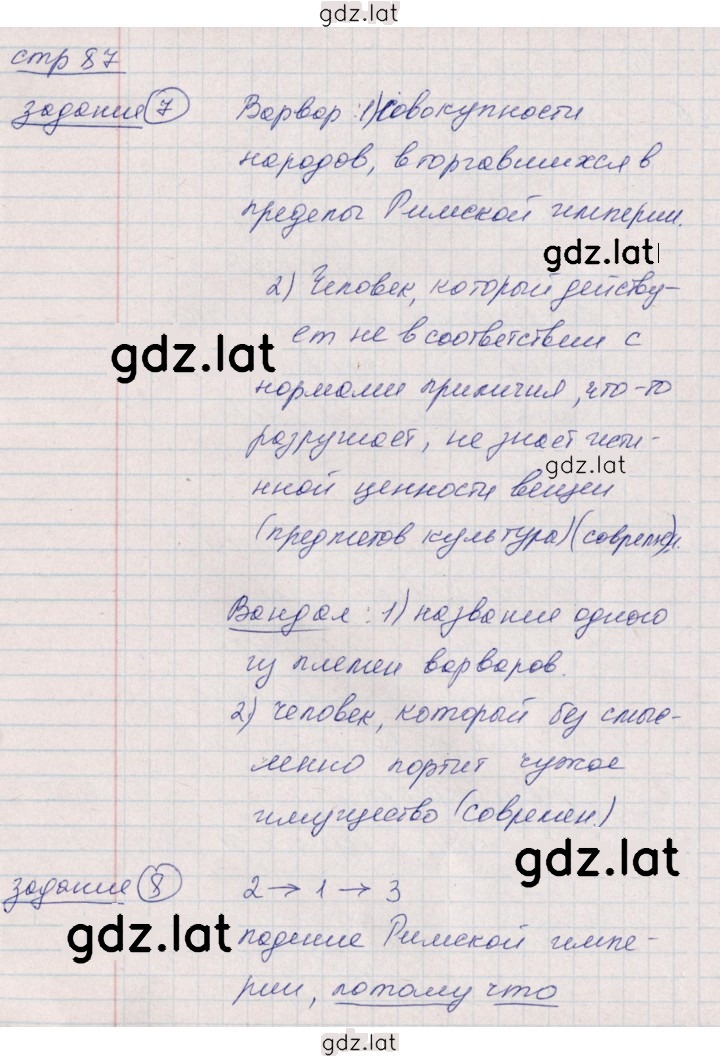 gdz.lat
стр 87
задание 7 Варвар: 1) совокупности
народов, вторгавшихся в
пределы Римской империи.
gdz.lat
2) Человек, который действу-
ет не в соответствии с
gdz.lat
нормами приличия, что-то
разрушает, не знает исти-
gdz.lat
нной ценности вещей
(предметов культура) (современ).
Вандал: 1) название одного
из племен варваров.
2) человек, который бессмыс-
ленно портит чужое
имущество (современ.)
gdz.lat
задание 8 2 → 1 → 3
gdz.lat
падение Римской импе-
рии, потому что
gdz.lat